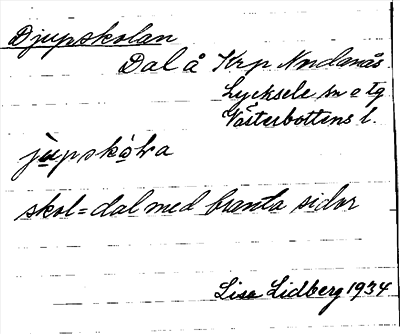 Djupskolan
Dal å Krp Nordanås
Lycksele sn o tg
Västerbottens l.
jupskåła
skol = dal med branta sidor
Lisa Lidberg 1934